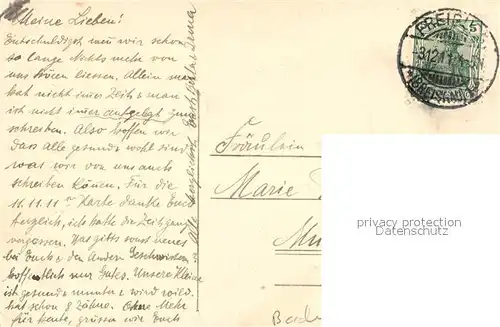 Meine Lieben!
Entschuldigt wenn wir schon
so lange Nichts mehr von
uns hören liessen. Allein man
hat nicht immer Zeit & man
ist nicht immer aufgelegt zum
schreiben. Also hoffen wir
dass alle gesund & wohl sind
was wir von uns auch
schreiben können. Für die
11.11.11 er Karte danke Euch
herzlich, ich hatte die Zeit ganz
vergessen. Was gitts sonst neues
bei Euch & den Andern Geschwistern
hoffentlich nur Gutes. Unsere Kleine
ist gesund & munter & wird wild.
hat schon 8 Zähne. Ohne Mehr
für heute, grüssen wir Euch
Alle herzlichst
Fräulein
Marie
Mu
Bade
FREIB
3.12.11
(BREISGAU)
PREUSSKARTEN.DE